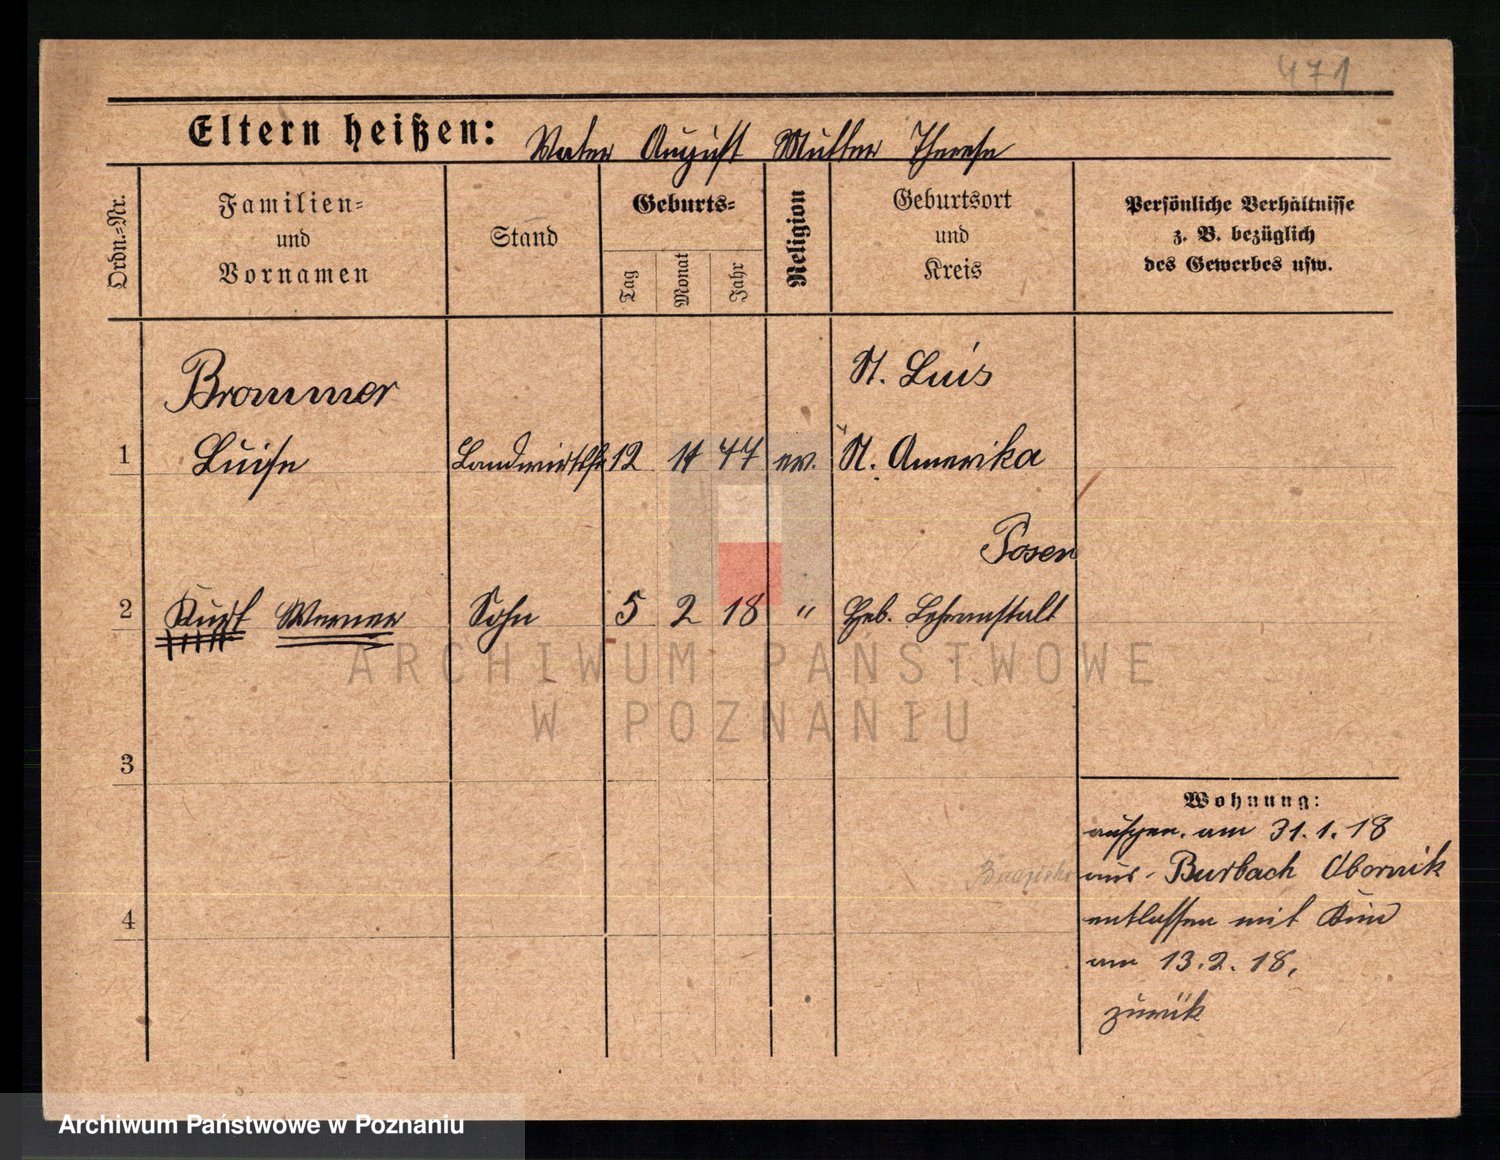 471
Eltern heißen: Vater August Mutter Therese
Ordn.-Nr.
Familien-
und
Vornamen
Stand
Geburts-
Tag
Monat
Jahr
Religion
Geburtsort
und
Kreis
Persönliche Verhältnisse
z. B. bezüglich
des Gewerbes usw.
Brommer
St. Luis
1 Luise 12 ev. Amerika
Posen
2 Kurt Werner Sohn 5 2 18 " Heb. Lehranstalt
ARCHIWUM PAŃSTWOWE
W POZNANIU
3
Wohnung:
aufgen. am 31.1.18
aus Burbach Obornik
4 entlassen mit Kind
am 13.2.18.
zurück
Archiwum Państwowe w Poznaniu